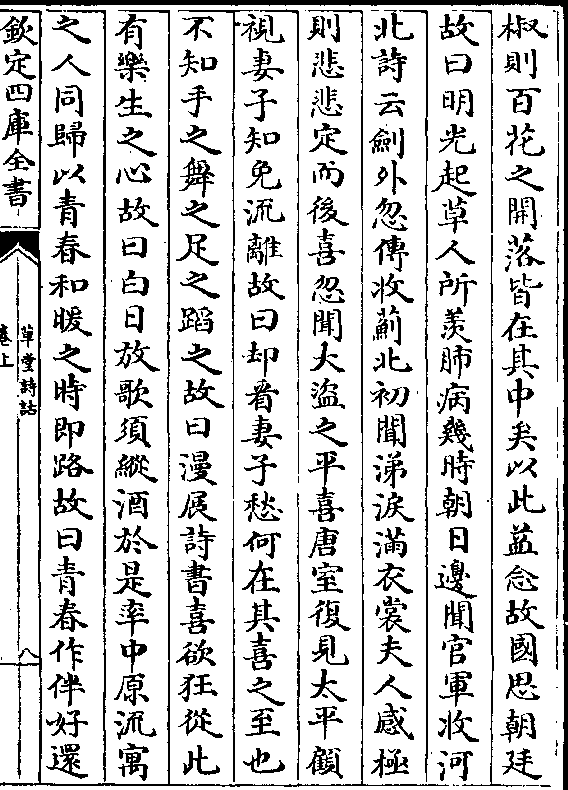 椒則百花之開落皆在其中矣以此益念故國思朝廷
故曰明光起草人所羨肺病幾時朝日邊聞官軍收河
北詩云劍外忽傳收薊北初聞涕淚滿衣裳夫人感極
則悲悲定而後喜忽聞大盜之平喜唐室復見太平顧
視妻子知免流離故曰却看妻子愁何在其喜之至也
不知手之舞之足之蹈之故曰漫展詩書喜欲狂從此
有樂生之心故曰白日放歌須縱酒於是率中原流寓
之人同歸以青春和暖之時即路故曰青春作伴好還
欽定四庫全書
草堂詩話
卷上
八